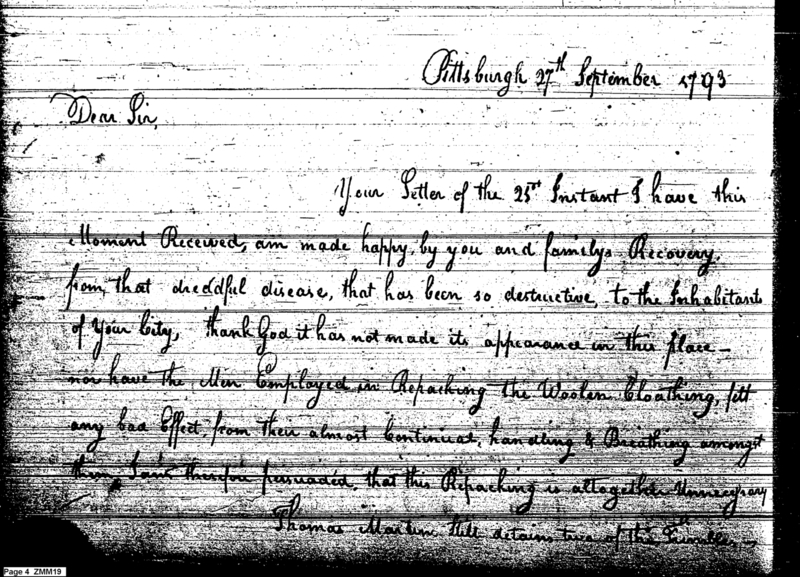 Pittsburgh 27th September 1793
Dear Sir,
Your Letter of the 25th Instant I have this
Moment Received, am made happy, by you and familys Recovery,
from, that dreddful disease, that has been so destructive, to the Inhabitants
of Your City, thank God it has not made its appearance in this place —
nor have the Men Employed in Repacking the Woolen Cloathing, felt
any bad Effect, from their almost Continual, handling & Breathing amongst
them, I am therefore persuaded, that this Repacking is altogether Unnecessary
Thomas Martin Still detains two of the
Page 4 ZMM19